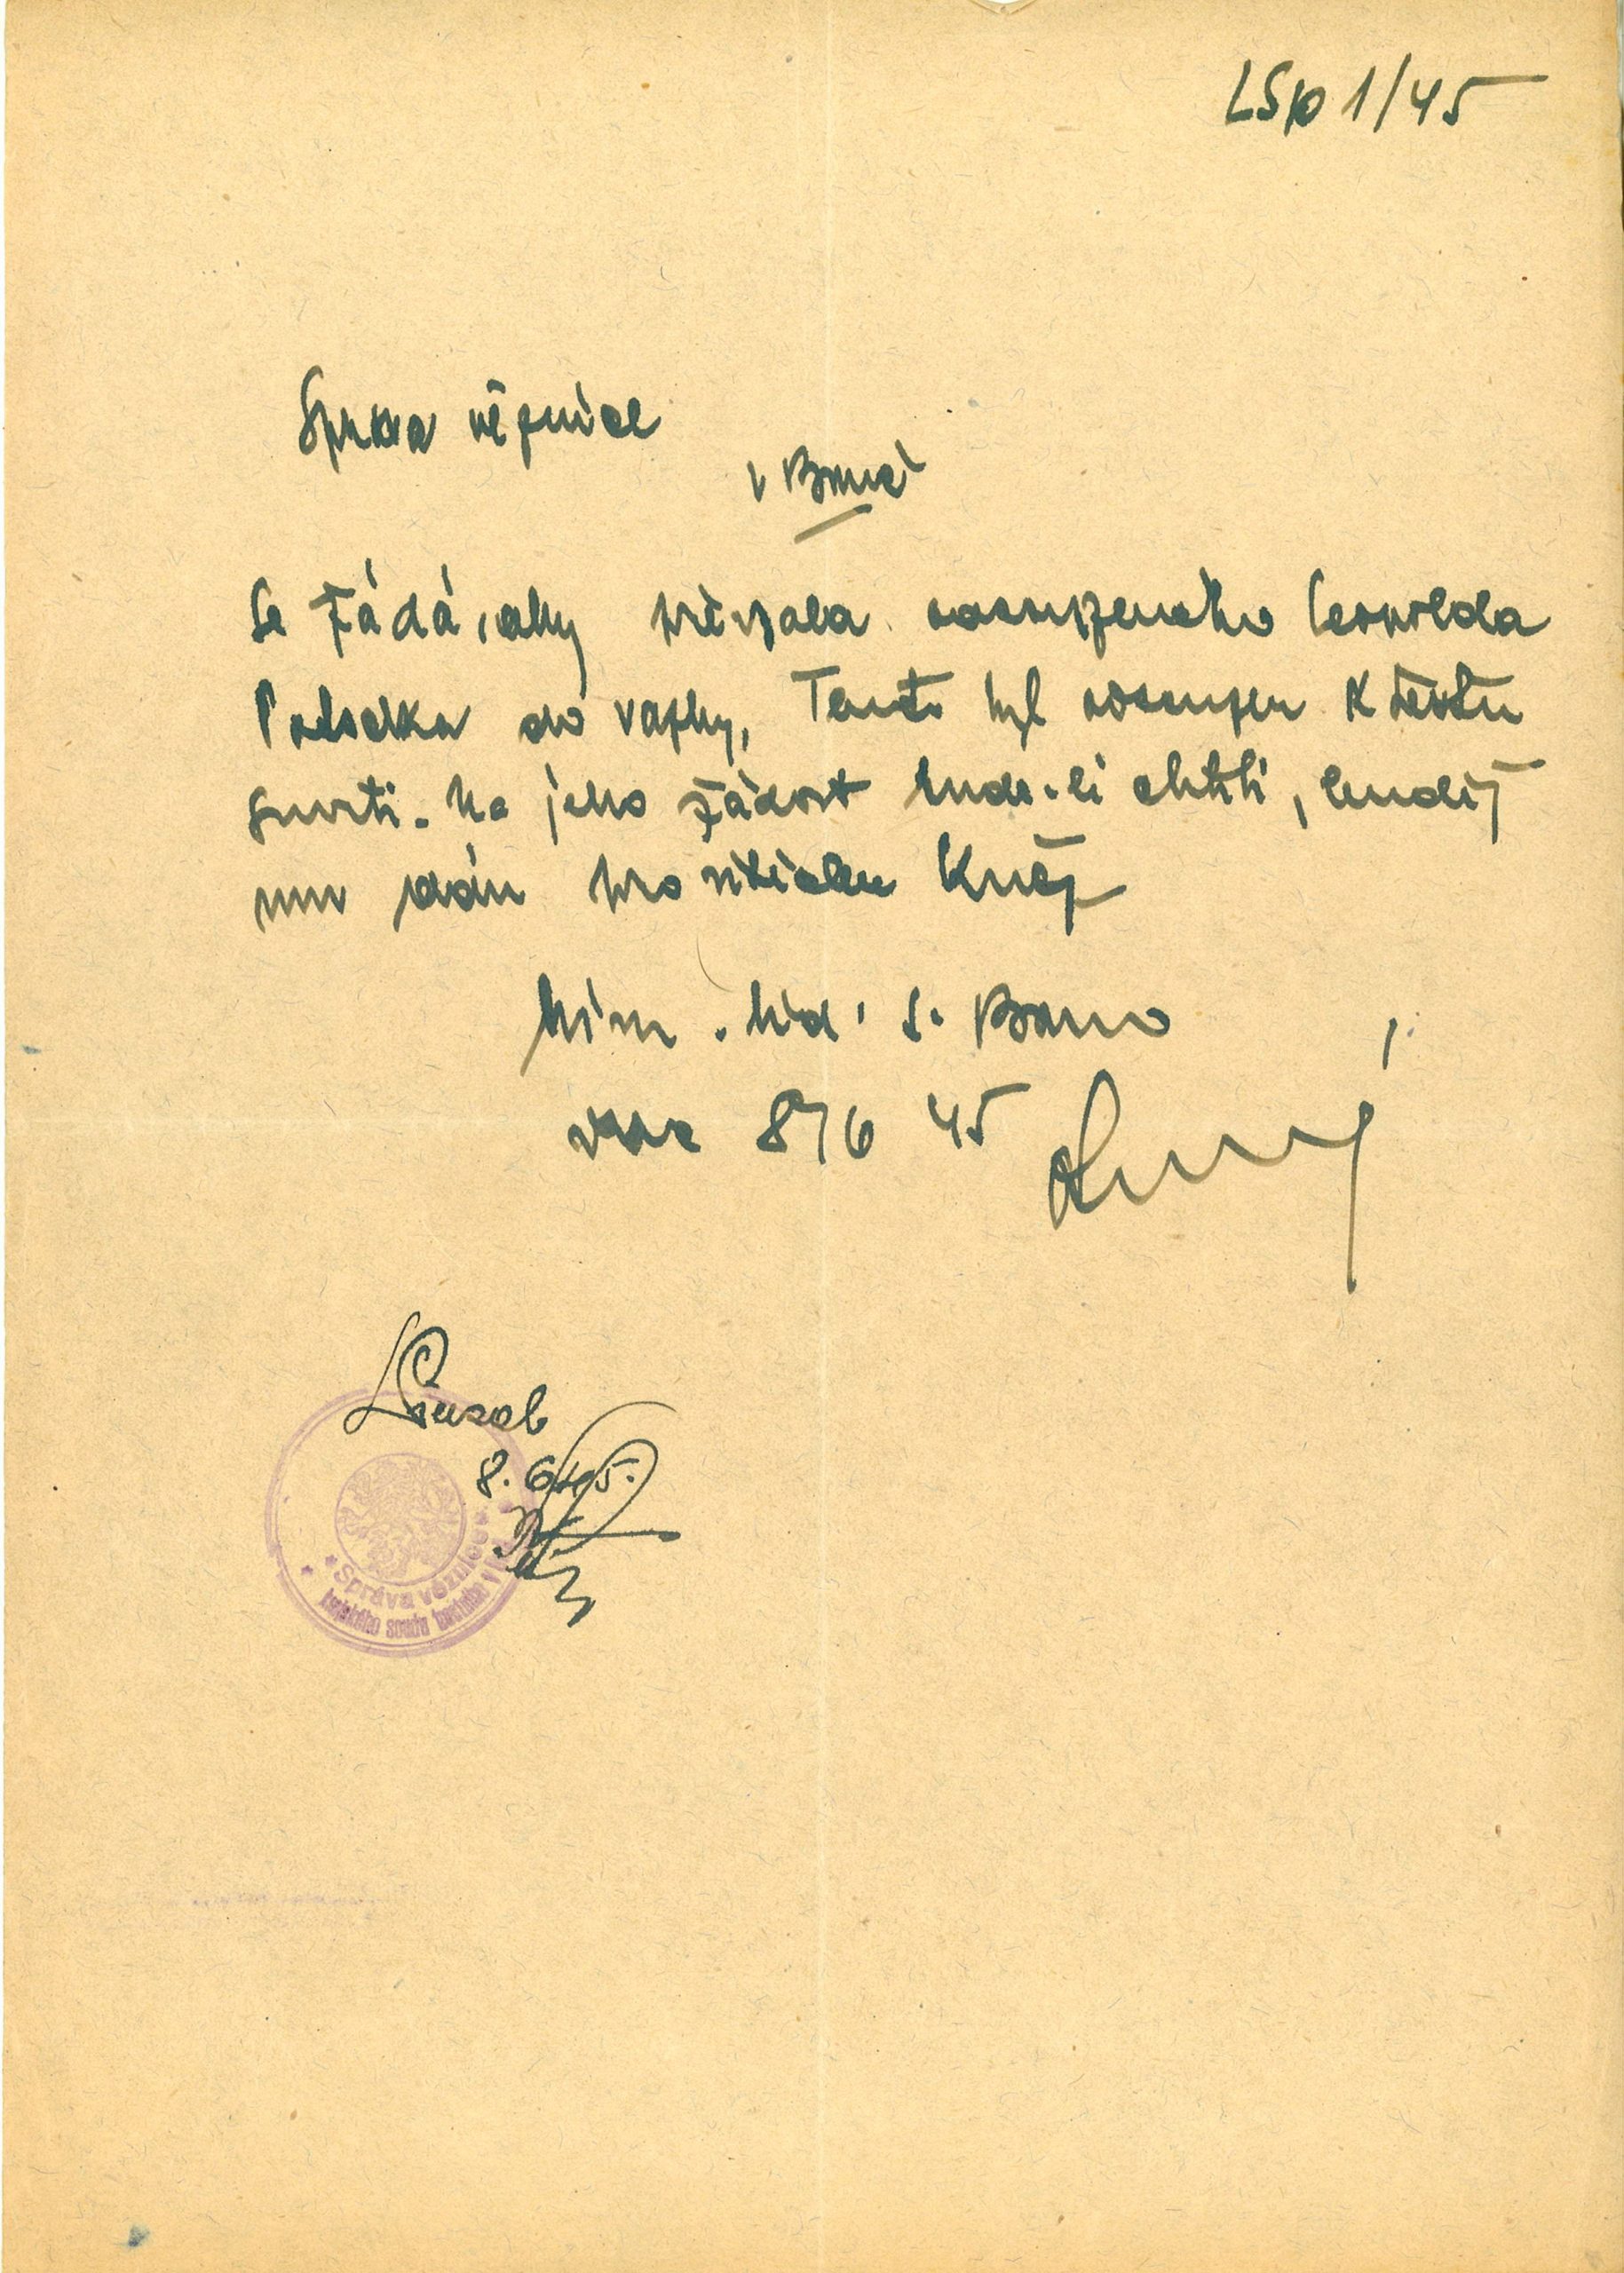 LSp 1/45
Správa věznice
v Brně
se žádá, aby převzala odsouzeného Leopolda
do vazby, Tento byl odsouzen k trestu
smrti. Na jeho žádost bude-li chtíti, budiž
mu dán k
Mim. lid. s. Brno
dne 8/6 45
8. 6. 45.
Správa věznice
krajského soudu trestního